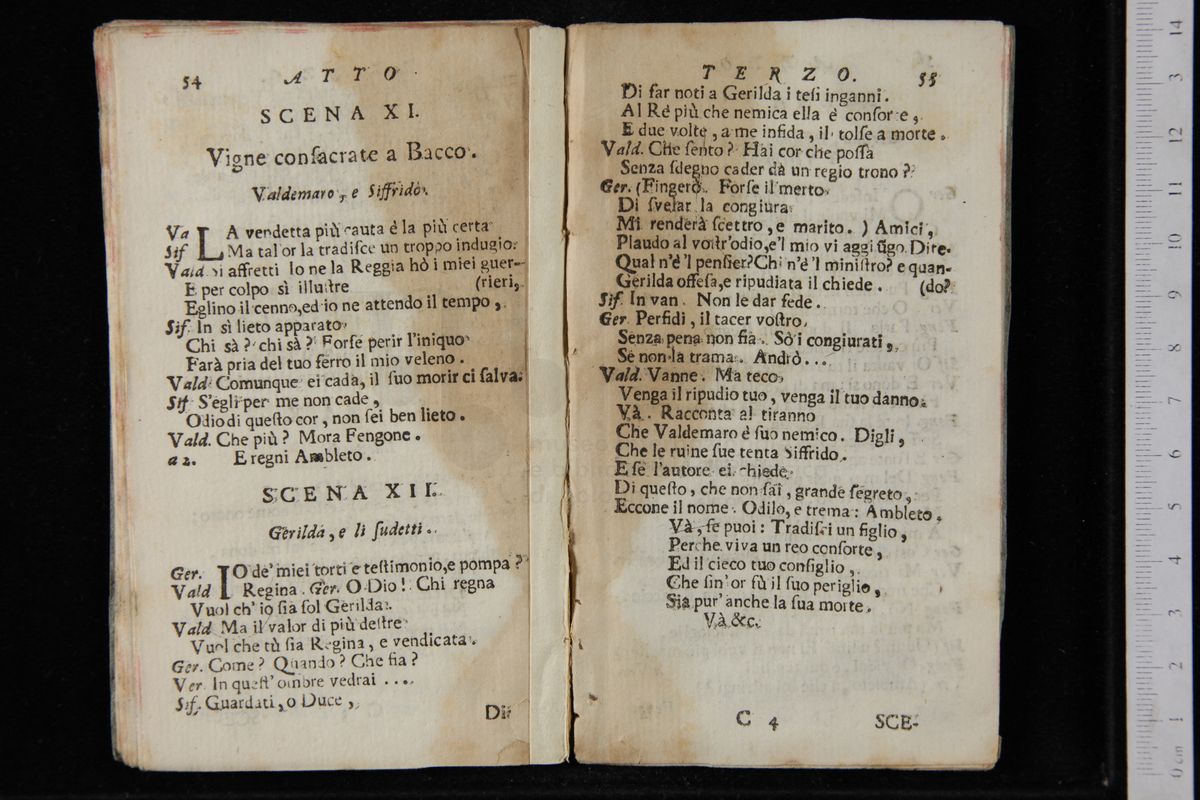 54 ATTO
SCENA XI.
Vigne consacrate a Bacco.
Valdemaro, e Siffrido.
Va LA vendetta più cauta è la più certa
Sif Ma tal'or la tradisce un troppo indugio.
Vald. Si affretti Io ne la Reggia hò i miei guer-
E per colpo sì illustre (rieri,
Eglino il cenno, ed io ne attendo il tempo,
Sif. In sì lieto apparato
Chi sà? chi sà? Forse perir l'iniquo
Farà pria del tuo ferro il mio veleno.
Vald Comunque ei cada, il suo morir ci salva.
Sif S'egli per me non cade,
Odio di questo cor, non sei ben lieto.
Vald. Che più? Mora Fengone.
a 2. E regni Ambleto.
SCENA XII.
Gerilda, e li sudetti.
Ger. IO de' miei torti e testimonio, e pompa?
Vald Regina. Ger. O Dio! Chi regna
Vuol ch' io sia sol Gerilda.
Vald Ma il valor di più destre
Vuol che tù sia Regina, e vendicata.
Ger. Come? Quando? Che fia?
Ver. In quest' ombre vedrai ....
Sif. Guardati, o Duce,
Di
TERZO. 55
Di far noti a Gerilda i tesi inganni.
Al Rè più che nemica ella è consorte,
E due volte, a me infida, il tolse a morte.
Vald. Che sento? Hai cor che possa
Senza sdegno cader dà un regio trono?
Ger. (Fingerò. Forse il merto
Di svelar la congiura
Mi renderà scettro, e marito.) Amici,
Plaudo al vostr'odio, e'l mio vi aggiungo. Dire.
Qual n'è'l pensier? Chi n'è'l ministro? e quan-
Gerilda offesa, e ripudiata il chiede. (do?
Sif. In van. Non le dar fede.
Ger. Perfidi, il tacer vostro
Senza pena non fia. Sò i congiurati,
Se non la trama. Andrò...
Vald. Vanne. Ma teco
Venga il ripudio tuo, venga il tuo danno.
Và. Racconta al tiranno
Che Valdemaro è suo nemico. Digli,
Che le ruine sue tenta Siffrido.
E se l'autore ei chiede
Di questo, che non sai, grande segreto,
Eccone il nome. Odilo, e trema: Ambleto.
Và, se puoi: Tradisci un figlio,
Perche viva un reo consorte,
Ed il cieco tuo consiglio,
Che sin' or fù il suo periglio,
Sia pur' anche la sua morte.
Và &c.
C 4 SCE-